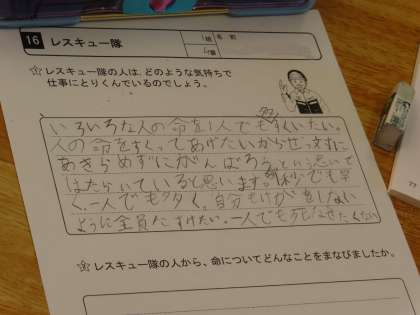 16 レスキュー隊
組 名前
番
レスキュー隊の人は、どのような気持ちで
仕事にとりくんでいるのでしょう。
いろいろな人の命を1人でも多くすくいたい。
人の命をすくってあげたいからぜったいに
あきらめずにがんばろうという思いで
はたらいていると思います。1秒でも早
く、一人でも多く。自分もけがをしない
ように全員たすけたい。一人でも死なせたくない
レスキュー隊の人から、命についてどんなことをまなびましたか。
77